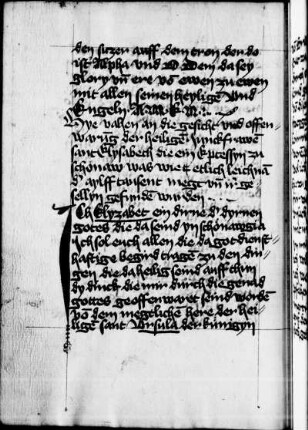 den sitzen auff dem tron der do
ist Alpha und O Dem da sey
glory vn̄ ere vō ewen zu ewen
mit allen seinen heyligen und
Engeln A M E N
Hye vahen an die gesicht und offen
warūg der heiligen Junckfrawē
sant Elysabeth die ein Eptessyn zu
schonaw was wie etlich leichnā
d' aylff tausent megt vn̄ ir ge
sellyn gefunde wurden
Ich Elyzabet ein dirne d' dyrnen
gotes die da seind yn schonawgia
Ich sol euch allen die da got dienst
hafftige begird tragē zu den din
gen die da heilig seind auff thun
dy dinck die mir durch die genad
gottes geoffenwaret seind wordē
vō dem megtliche here der hei
ligen sant Ursula der künigyn